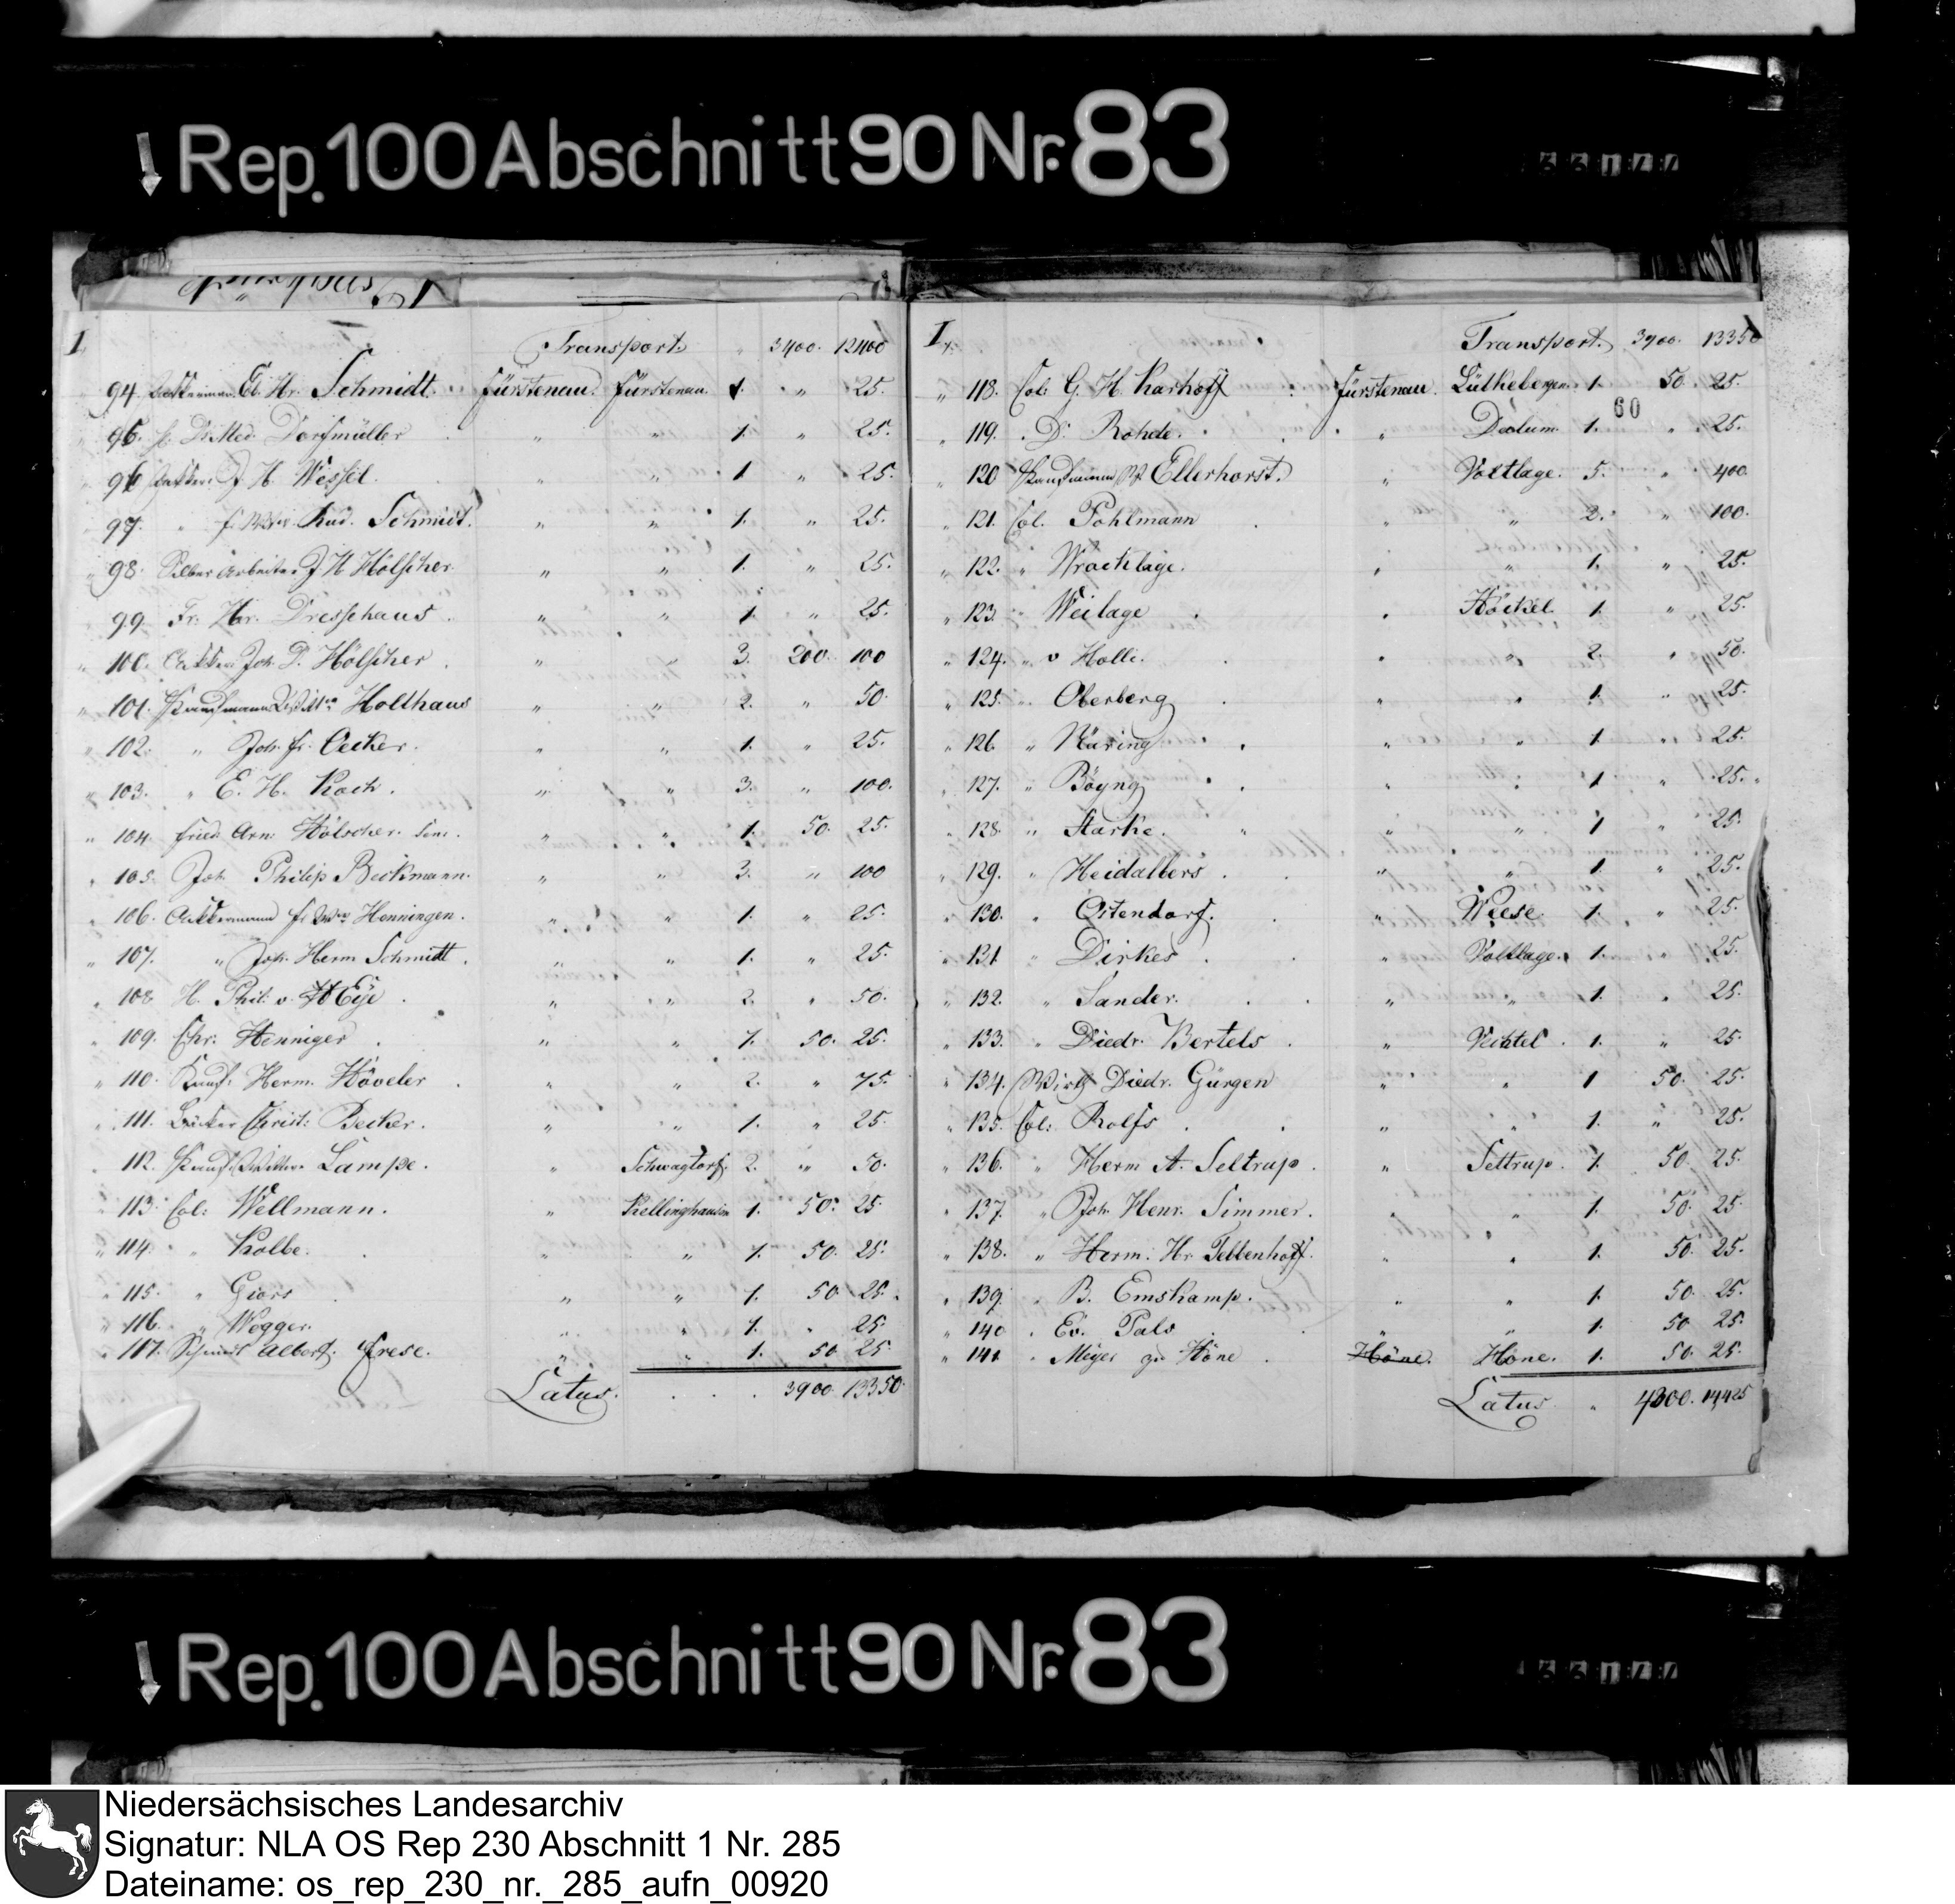 Rep. 100 Abschnitt 90 Nr. 83
I
Transport. " 3400. 12400
94 Ackerman Hr. Schmidt. Fürstenau. Fürstenau. 1. " 25.
95. Dr. Med. Dorfmüller " " 1. " 25.
96 J. H. Wessel. " " 1 " 25.
97. " Rud. Schmidt. " " 1. " 25.
98. Silber Arbeiter J H Hölscher " " 1. " 25.
99 Fr. Hr. Dresshaus " " 1. " 25.
100. Joh. D. Hölscher " " 3. 200. 100
101. Kaufmann Holthaus " " 2. " 50.
102. " Joh. Fr. Becker. " " 1. " 25.
103. " E. H. Koch. " " 3. " 100.
104. Fried. Arn. Hölscher. Sen. " " 1. 50. 25.
105. Joh. Philip Beckmann. " " 3. " 100
106. Ackermann Henningen. " " 1. " 25.
107. " Joh. Herm Schmidt. " " 1. " 25.
108 H. Phil. v. Eye " " 2. " 50.
109. Chr. Henniger " " 1. 50. 25.
110. Kauf: Herm. Höveler " " 2. " 75.
111. Bäcker Christ: Becker. " " 1. " 25.
112. Kauf: Lampe. " Schwagtorf. 2. " 50.
113. Col: Wellmann. " Settlinghausen 1. 50. 25
114. " Kolbe. " " 1. 50. 25.
115. " Giers " " 1. 50. 25.
116. " Wegger. " " 1. . 25.
117. Schmidt Albert. Frese. " " 1. 50 25
Latus. . . . 3900. 13350.
I.
Transport. 3900. 13350
" 118. Col: G. H. Karhoff Fürstenau. Lütkebergen. 1. 50. 25.
60
" 119. " D. Rohde. " Dalum 1. " 25.
" 120 Kaufmann Ellerhorst. " Voltlage. 5. " 400.
" 121. Col. Pohlmann " " 2. " 100.
" 122. " Wrachlage. " " 1. " 25.
" 123. " Weilage " Höckel 1. " 25.
" 124. " v Holli. " " 2. " 50.
" 125. " Oberberg " " 1. " 25.
" 126. " Näring " " 1. " 25.
" 127. " Böyng " " 1 " 25.
" 128. " Starke. " " 1 " 25.
" 129. " Heidalbers " " 1. " 25.
" 130. " Ostendorf. " Weese 1. " 25.
" 131 " Dirkes " Voltlage. 1. " 25.
" 132. " Sander. " " 1. " 25.
" 133. " Diedr. Bertels " Vechtel 1. " 25.
" 134. Wirth Diedr. Gürgen " " 1 50. 25.
" 135. Col: Rolfs " " 1. " 25.
" 136. " Herm A. Seltrup. " Settrup. 1. 50. 25
" 137. " Joh. Henr. Simmer. " " 1. 50. 25.
" 138. " Herm: Hr Tebbenhoff. " " 1. 50. 25.
" 139. " B. Emskamp. " " 1. 50. 25.
" 140 " Ev. Pals " " 1. 50 25.
" 141 " Meyer zu Höne Höne. Höne. 1. 50. 25.
Latus. " 4300. 14,425
Rep. 100 Abschnitt 90 Nr. 83
Niedersächsisches Landesarchiv
Signatur: NLA OS Rep 230 Abschnitt 1 Nr. 285
Dateiname: os_rep_230_nr._285_aufn_00920